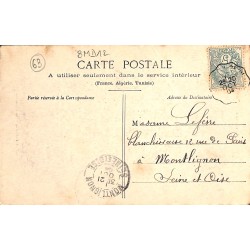 63
BMD12
CARTE POSTALE
A utiliser seulement dans le service intérieur
(France, Algérie, Tunisie)
Partie réservée à la Correspondance
Adresse du Destinataire
Madame Lefèvre
Blanchisseuse 12 rue de Paris
à Montlignon
Seine et Oise
MONTLIGNON
21